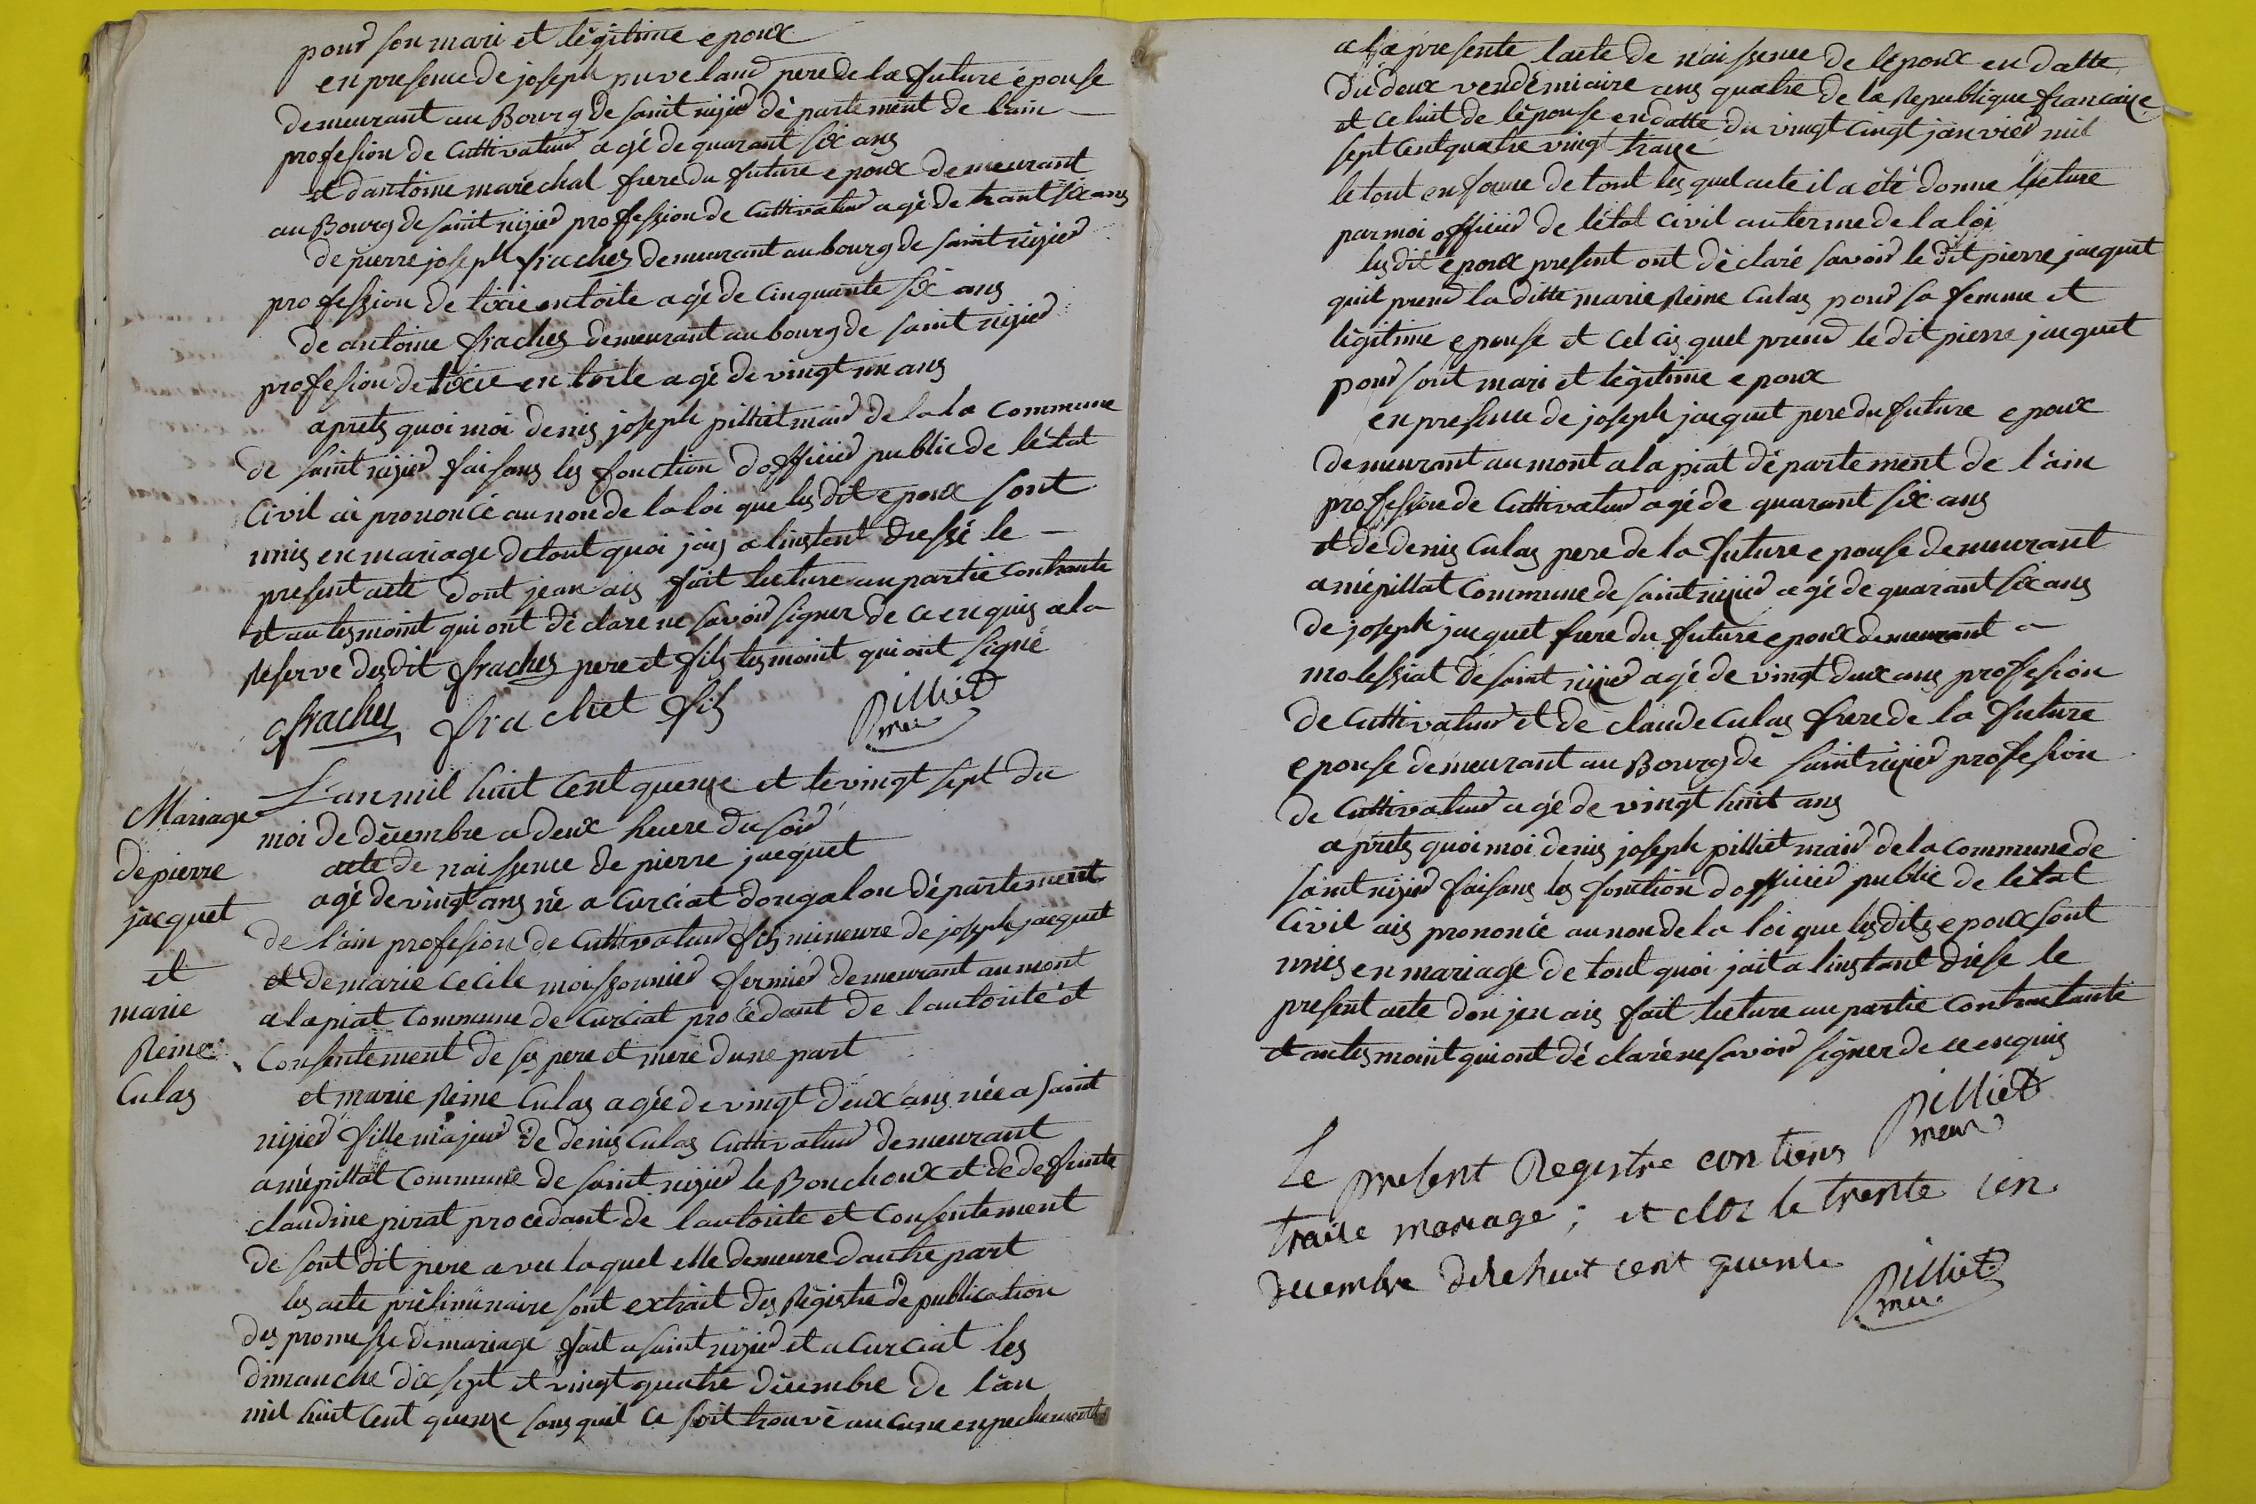 pour son mari et légitime epoux
en presence de joseph puveland pere de la future épouse
demeurant au Bourg de saint nizier département de lain
profesion de Cultivateur agé de quarant six ans
et dantoine maréchal frere du future epoux demeurant
au Bourg de saint nizier profession de Cultivateur agé de trant six ans
de pierre joseph frachet demeurant au bourg de saint nizier
profession de tixie en toile agé de Cinquante six ans
de antoine frachet demeurant au bourg de saint nizier
profesion de tixie en toile agé de vingt un ans
aprets quoi moi denis joseph pilliet maire de la la Commune
de saint nizier faisans les fonction dofficier public de létat
Civil ai prononcé au non de la loi que les dit epoux sont
unis en mariage de tout quoi jais a linstent dressé le
present acte dont jean ais fait lecture au partie Contrante
et au tesmoint qui ont déclaré ne savoir signer de ce enquis a la
Reserve des dit frachet pere et fils tesmoint qui ont signé
frachet frachet fils Pilliet
mer
Mariage
de pierre
jacquet
et
marie
Reine
Culas
L'an mil huit Cent quenze et le vingt sept du
moi de décembre a deux heuere du soir
acte de naissence de pierre jacquet
agé de vingt ans né a Curciat dongalon département
de l'ain profesion de Cultivateur fils mineure de joseph jacquet
et de marie Cecile moissonnier fermier demeurant au mont
a la piat Commune de Curciat procédant de lautorité et
Consentement de ses pere et mere dune part
et marie Reine Culas agée de vingt deux ans née a saint
nizier fille majeur de denis Culas Cultivateur demeurant
a népillat Commune de saint nizier le Bouchoux et de defunte
claudine pirat procedant de lautorite et Consentement
de sont dit pere avec laquel elle demeure dautre part
les acte préliminaire sont extrait des Régistre de publication
des promesse de mariage fait a saint nizier et a Curciat les
dimanche dix sept et vingt quatre décembre de l'an
mil huit Cent quenze sans quil ce soit trouvé aucune enpechement
a la presente lacte de naissence de lépoux en datte
du deux vendémiaire ans quatre de la Republique francaise
et celuit de lépouse en datte du vingt Cingt janvier mil
sept Cent quatre vingt traize
le tout en forme de tout les quel acte il a été donne lecture
par moi officier de létat Civil au terme de la loi
les dit epoux present ont déclaré savoir le dit pierre jacquet
quil prend la ditte marie Reine Culas pour sa femme et
légitime epouse et cel cis quel prend le dit pierre jacquet
pour sont mari et légitime epoux
en presence de joseph jacquet pere du future epoux
demeurant au mont a la piat département de l'ain
profesion de Cultivateur agé de quarant six ans
et de denis Culas pere de la future epouse demeurant
a népillat Commune de saint nizier agé de quarant six ans
de joseph jacquet frere du future epoux demeurant a
molessiat de saint nizier agé de vingt deux ans profesion
de Cultivateur et de claude Culas frere de la future
epouse demeurant au Bourg de saint nizier profesion
de Cultivateur agé de vingt huit ans
aprets quoi moi denis joseph pilliet maire de la Commune de
saint nizier faisans les fonction dofficier public de létat
Civil ais prononcé au non de la loi que les dits epoux sont
unis en mariage de tout quoi jait a linstant drésé le
present acte don jen ais fait lecture au partie Contractante
et au tesmoint qui ont déclaré ne savoir signer de ce enquis
Pilliet
mer
Le present Registre contiens
traise mariage ; et cloz le trente un
decembre dixe huit cent quense
Pilliet
mer